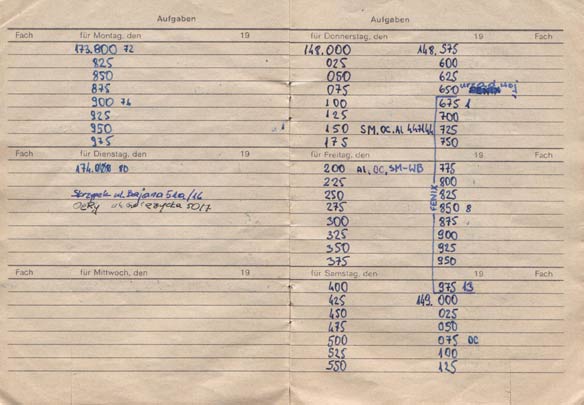 Aufgaben
Fach für Montag, den 19
173.800 72
825
850
875
900 74
925
950
975
für Dienstag, den 19
174.028 80
Skrzypek ul. Bajana 5ka/16
50/7
Fach für Mittwoch, den 19
Aufgaben
für Donnerstag, den 19 Fach
148.000 148.575
025 600
050 625
075 650
100 675 1
125 700
150 SM, OC, AL 447/44 725
175 750
für Freitag, den 19 Fach
200 AL, OC, SM-WB 775
225 800
FENIX
250 825
275 850 8
300 875
325 900
350 925
375 950
für Samstag, den 19 Fach
400 975 13
425 149.000
450 025
475 050
500 075 OC
525 100
550 125